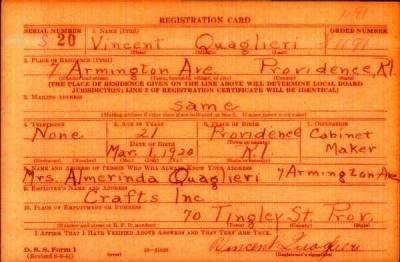 REGISTRATION CARD
SERIAL NUMBER
1. NAME (Print)
ORDER NUMBER
S 20
Vincent Quaglieri
2. PLACE OF RESIDENCE (Print)
7 Armington Ave Providence, R.I.
[THE PLACE OF RESIDENCE GIVEN ON THE LINE ABOVE WILL DETERMINE LOCAL BOARD
JURISDICTION; LINE 2 OF REGISTRATION CERTIFICATE WILL BE IDENTICAL]
3. MAILING ADDRESS
same
4. TELEPHONE
5. AGE IN YEARS
6. PLACE OF BIRTH
7. OCCUPATION
None
21
Providence
Cabinet
DATE OF BIRTH
Mar. 1, 1920
R.I.
Maker
8. NAME AND ADDRESS OF PERSON WHO WILL ALWAYS KNOW YOUR ADDRESS
Mrs. Almerinda Quaglieri 7 Armington Ave
9. EMPLOYER'S NAME AND ADDRESS
Crafts Inc
10. PLACE OF EMPLOYMENT OR BUSINESS
70 Tingley St. Prov.
I AFFIRM THAT I HAVE VERIFIED ABOVE ANSWERS AND THAT THEY ARE TRUE.
D. S. S. Form 1
Vincent Quaglieri